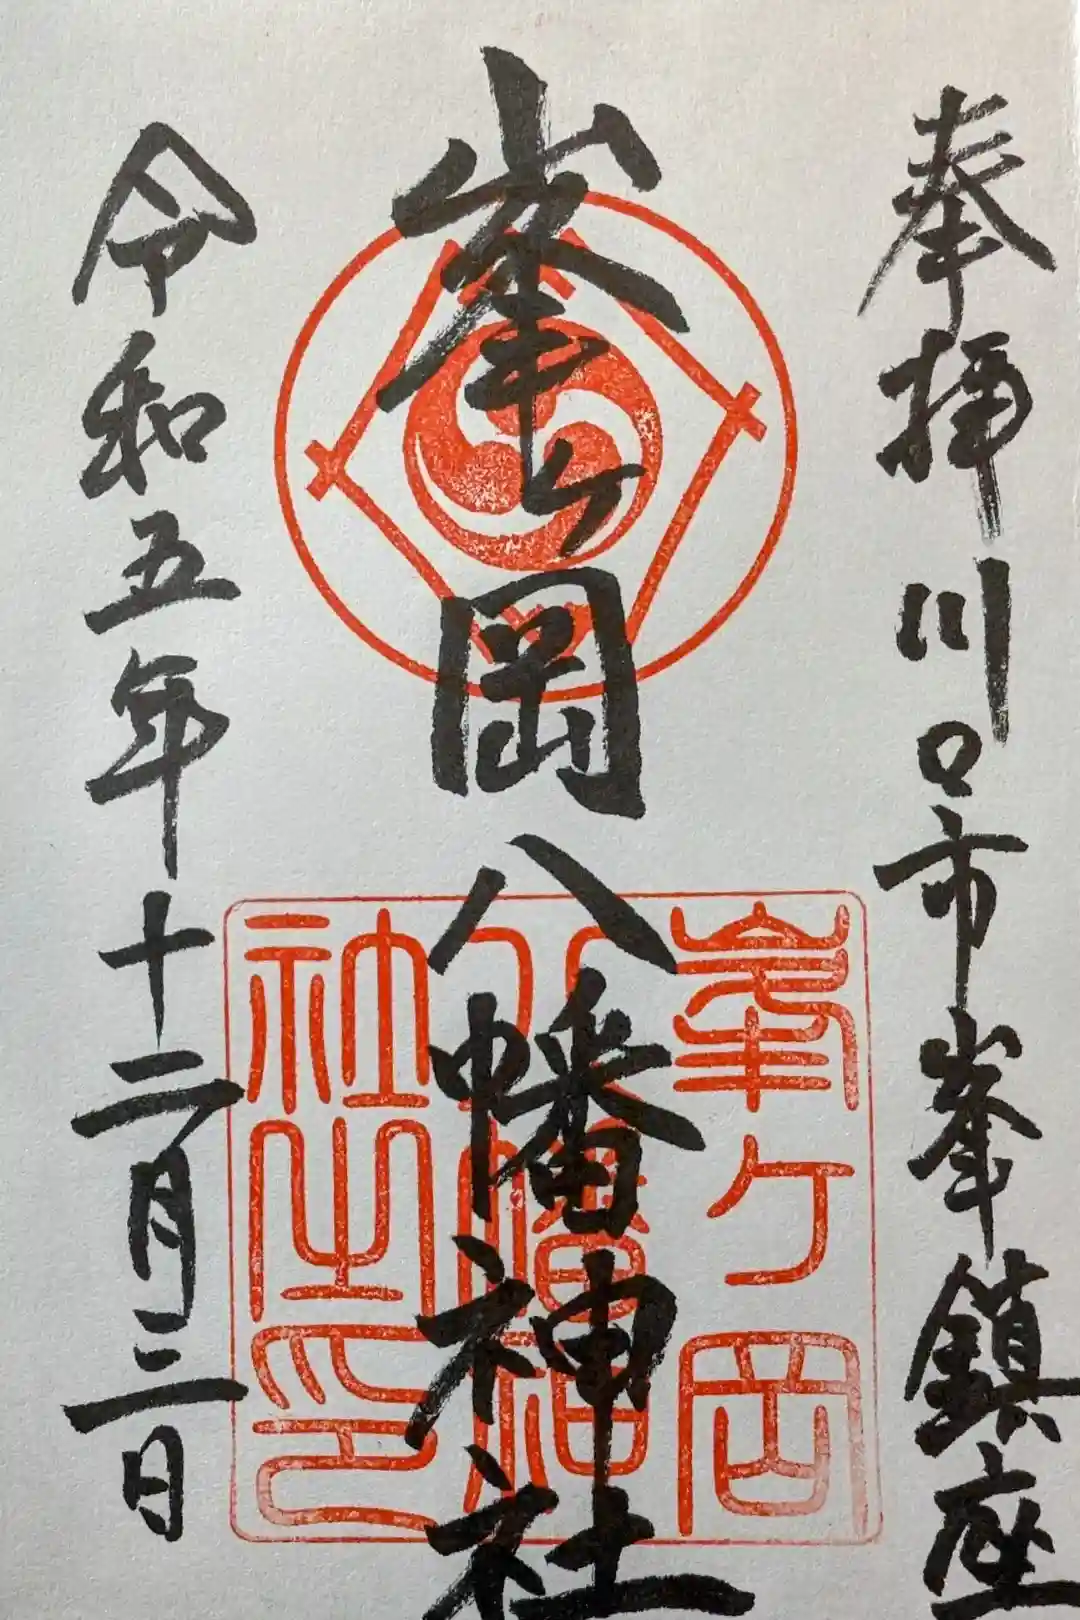 奉拝 川口市峯鎮座
峯ヶ岡八幡神社
令和五年十二月三日
峯ヶ岡
八幡神
社之印